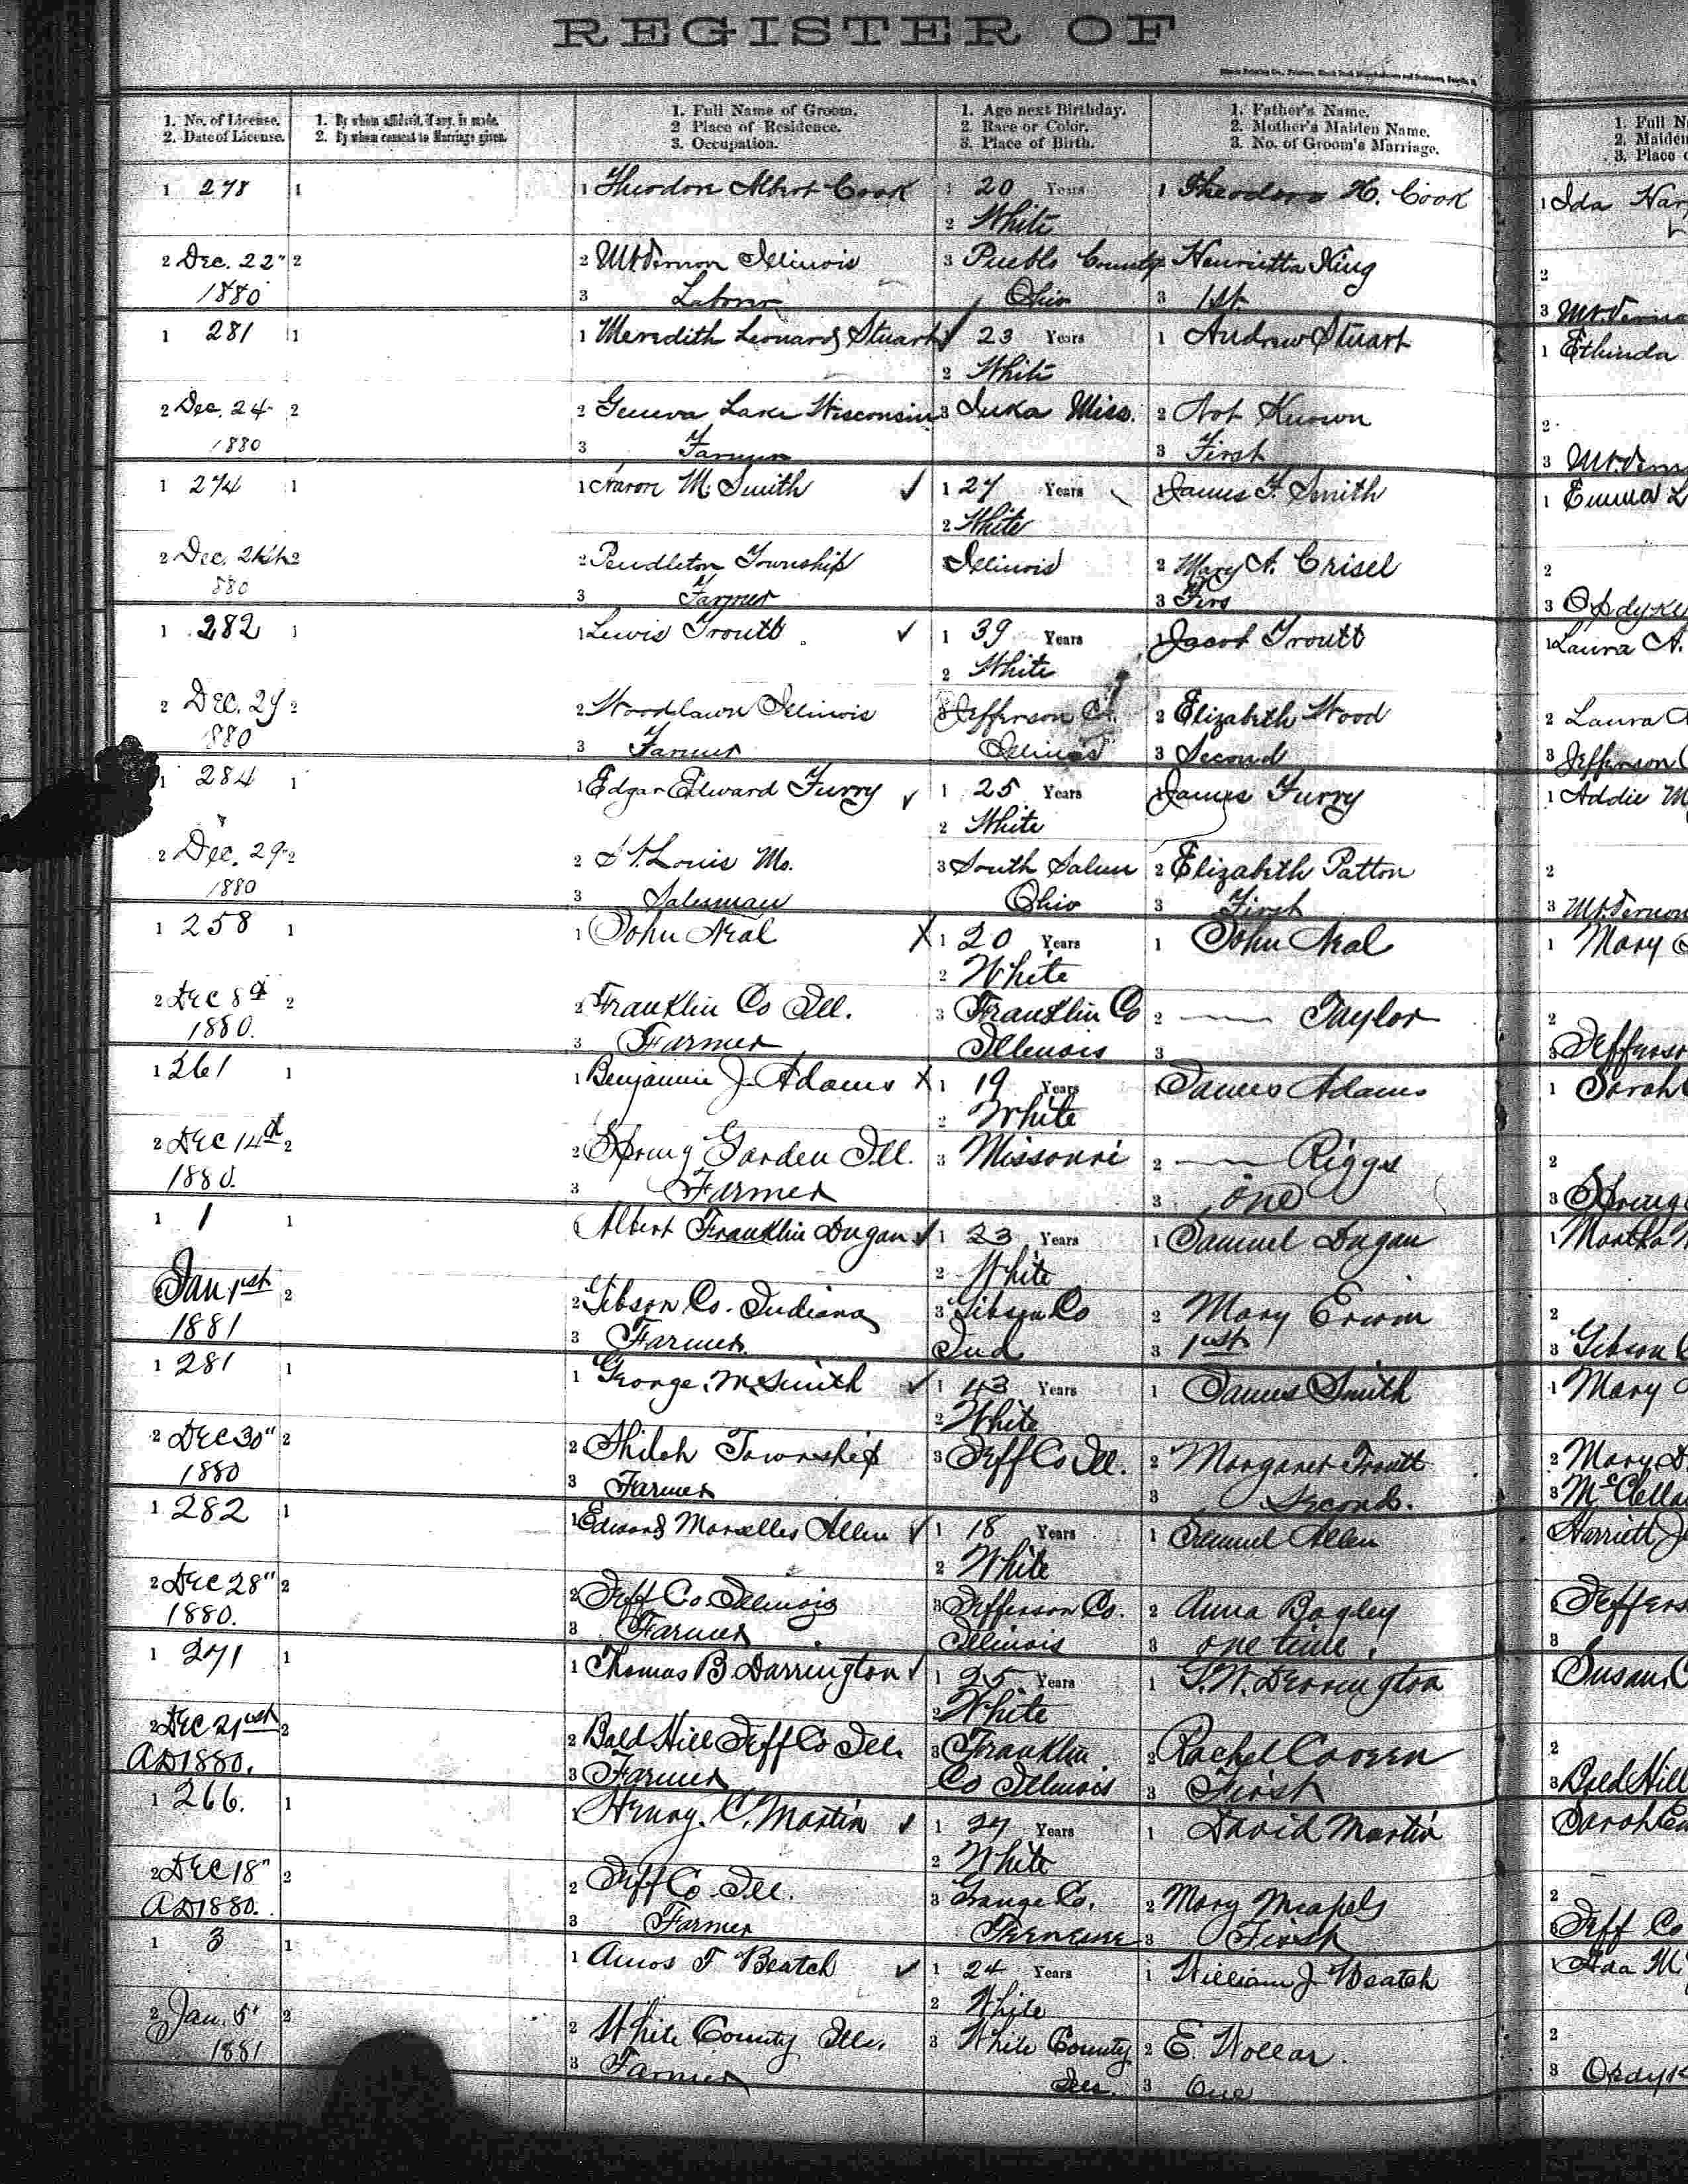 REGISTER OF
1. No. of License.
2. Date of License.
1. By whom affidavit, if any, is made.
2. By whom consent to Marriage given.
1. Full Name of Groom.
2 Place of Residence.
3. Occupation.
1. Age next Birthday.
2. Race or Color.
3. Place of Birth.
1. Father's Name.
2. Mother's Maiden Name.
3. No. of Groom's Marriage.
1. Full N
2. Maiden
3. Place o
1 278 1 1 Theodore Albert Cook 1 20 Years 1 Theodore H. Cook 1 Ida Har
2 White
2 Dec. 22" 2 2 Mt. Vernon Illinois 3 Pueblo County Henrietta King 2
1880 3 Laborer Ohio 3 1st. 3 Mt. Verno
1 281 1 1 Meredith Leonard Stuart 1 23 Years 1 Andrew Stuart 1 Ethinda
2 White
2 Dec. 24 2 2 Geneva Lake Wisconsin 3 Iuka Miss. 2 Not Known 2
1880 3 Farmer 3 First 3 Mt. Vern
1 274 1 1 Aaron M. Smith ✓ 1 27 Years 1 James F. Smith 1 Emma L
2 White
2 Dec. 2 2 Pendleton Township Illinois 2 Mary A. Crisel 2
880 3 Farmer 3 Firs 3 Opdyke
1 282 1 1 Lewis Troutt ✓ 1 39 Years 1 Jacob Troutt 1 Laura A.
2 White
2 Dec. 29 2 2 Woodlawn Illinois 3 Jefferson Co. 2 Elizabeth Wood 2 Laura
880 3 Farmer Illinois 3 Second 3 Jefferson C
1 284 1 1 Edgar Edward Furry ✓ 1 25 Years 1 James Furry 1 Addie M
2 White
2 Dec. 29 2 2 St. Louis Mo. 3 South Salem 2 Elizabeth Patton 2
1880 3 Salesman Ohio 3 First 3 Mt. Vernon
1 258 1 1 John Neal X 1 20 Years 1 John Neal 1 Mary
2 White
2 Dec 8d 2 2 Franklin Co Ill. 3 Franklin Co 2 —— Taylor 2
1880. 3 Farmer Illinois 3 3 Jefferso
1 261 1 1 Benjamin J. Adams X 1 19 Years 1 James Adams 1 Sarah
2 White
2 Dec 14d 2 2 Spring Garden Ill. 3 Missouri 2 —— Riggs 2
1880. 3 Farmer 3 one 3 Spring
1 1 1 Albert Franklin Dugan ✓ 1 23 Years 1 Samuel Dugan 1 Martha
2 White
Jan 1st 2 2 Gibson Co. Indiana 3 Gibson Co 2 Mary Erwin 2
1881 3 Farmer Ind 3 1st 3 Gibson C
1 281 1 1 George. M. Smith ✓ 1 43 Years 1 James Smith 1 Mary
2 White
2 Dec 30" 2 2 Shiloh Township 3 Jeff Co Ill. 2 Margaret Troutt 2 Mary D.
1880 3 Farmer 3 Second. 3 McClella
1 282 1 1 Edward Marcelles Allen ✓ 1 18 Years 1 Samuel Allen Harriett J
2 White
2 Dec 28" 2 2 Jeff Co Illinois 3 Jefferson Co. 2 Anna Bagley Jeffers
1880. 3 Farmer Illinois 3 one time. 3
1 271 1 1 Thomas B. Darrington ✓ 1 25 Years 1 T.W. Derrington Susan C
2 White
2 Dec 21st 2 2 Bald Hill Jeff Co Ill. 3 Franklin 2 Rachel 2
AD1880. 3 Farmer Co Illinois 3 First 3 Bald Hill
1 266. 1 1 Henry. C. Martin ✓ 1 Years 1 David Martin Sarah
2 White
2 Dec 18" 2 2 Jeff Co. Ill. 3 Co. 2 Mary 2
AD1880. 3 Farmer 3 First 3 Jeff Co
1 3 1 1 Amos F Beatch ✓ 1 24 Years 1 William J. Beatch 1 Ada M
2 White
2 Jan. 5" 2 2 White County Ills. 3 White County 2 E. 2
1881 3 Farmer Ills. 3 One 3 Opdyk